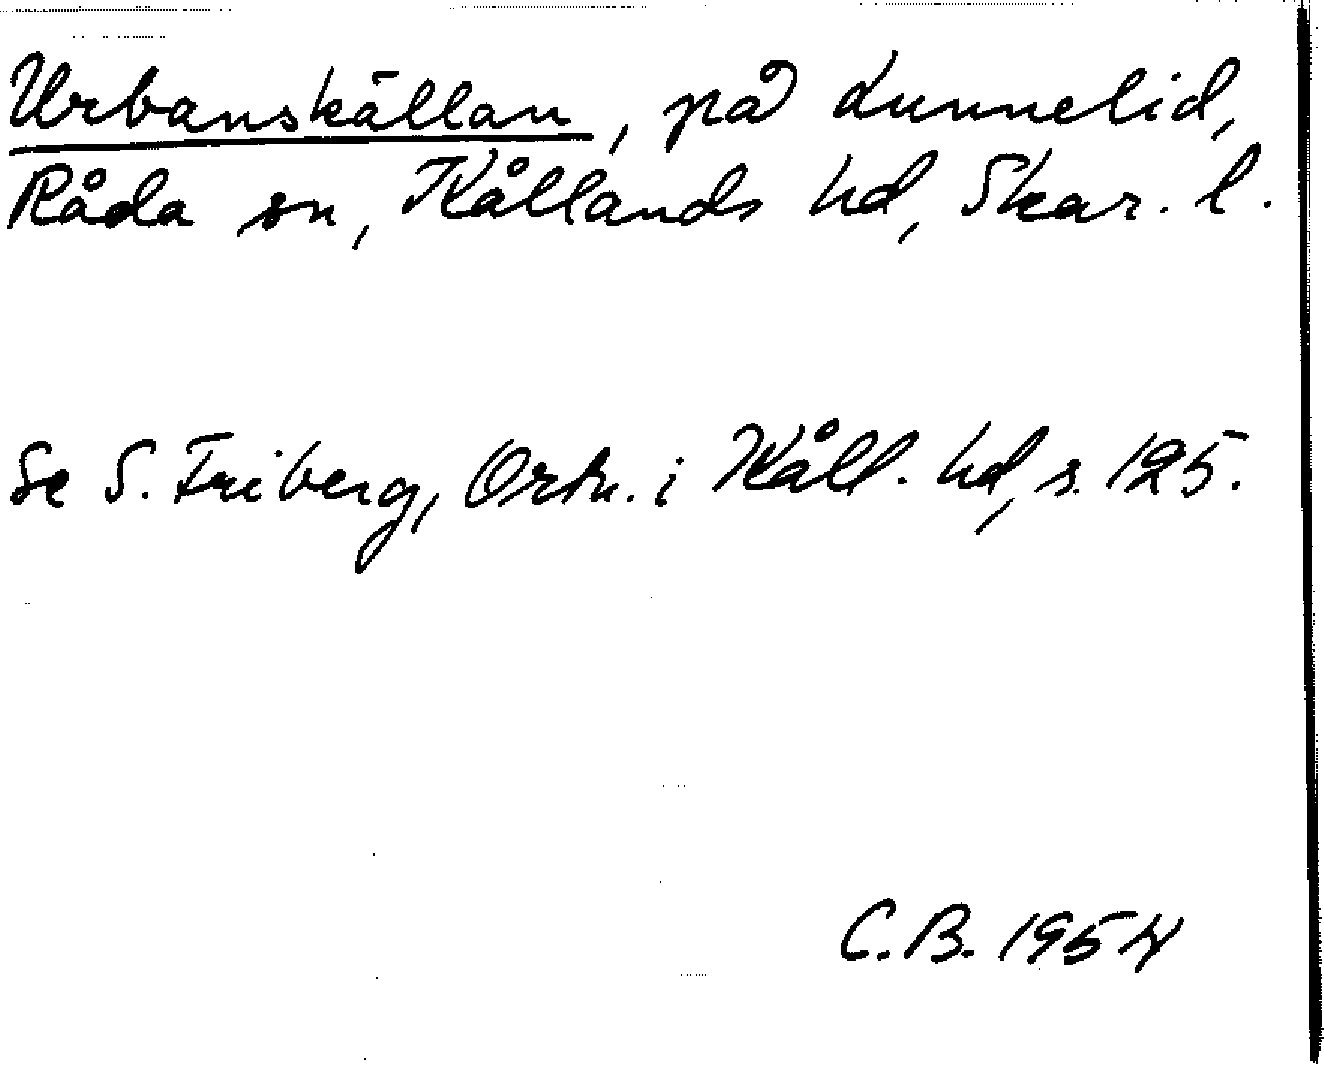 Urbanskällan, på Lunnelid,
Råda sn, Kållands hd, Skar. l.
Se S. Friberg, Ortn. i Kåll. hd, s. 125.
C.B. 1954